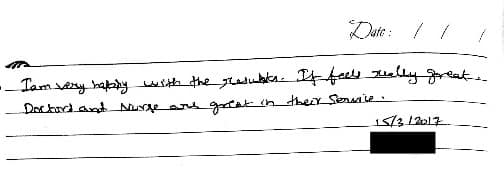 Date: / / /
I am very happy with the results. It feels really great.
Doctors and Nurse are great in their Service.
15/3/2017